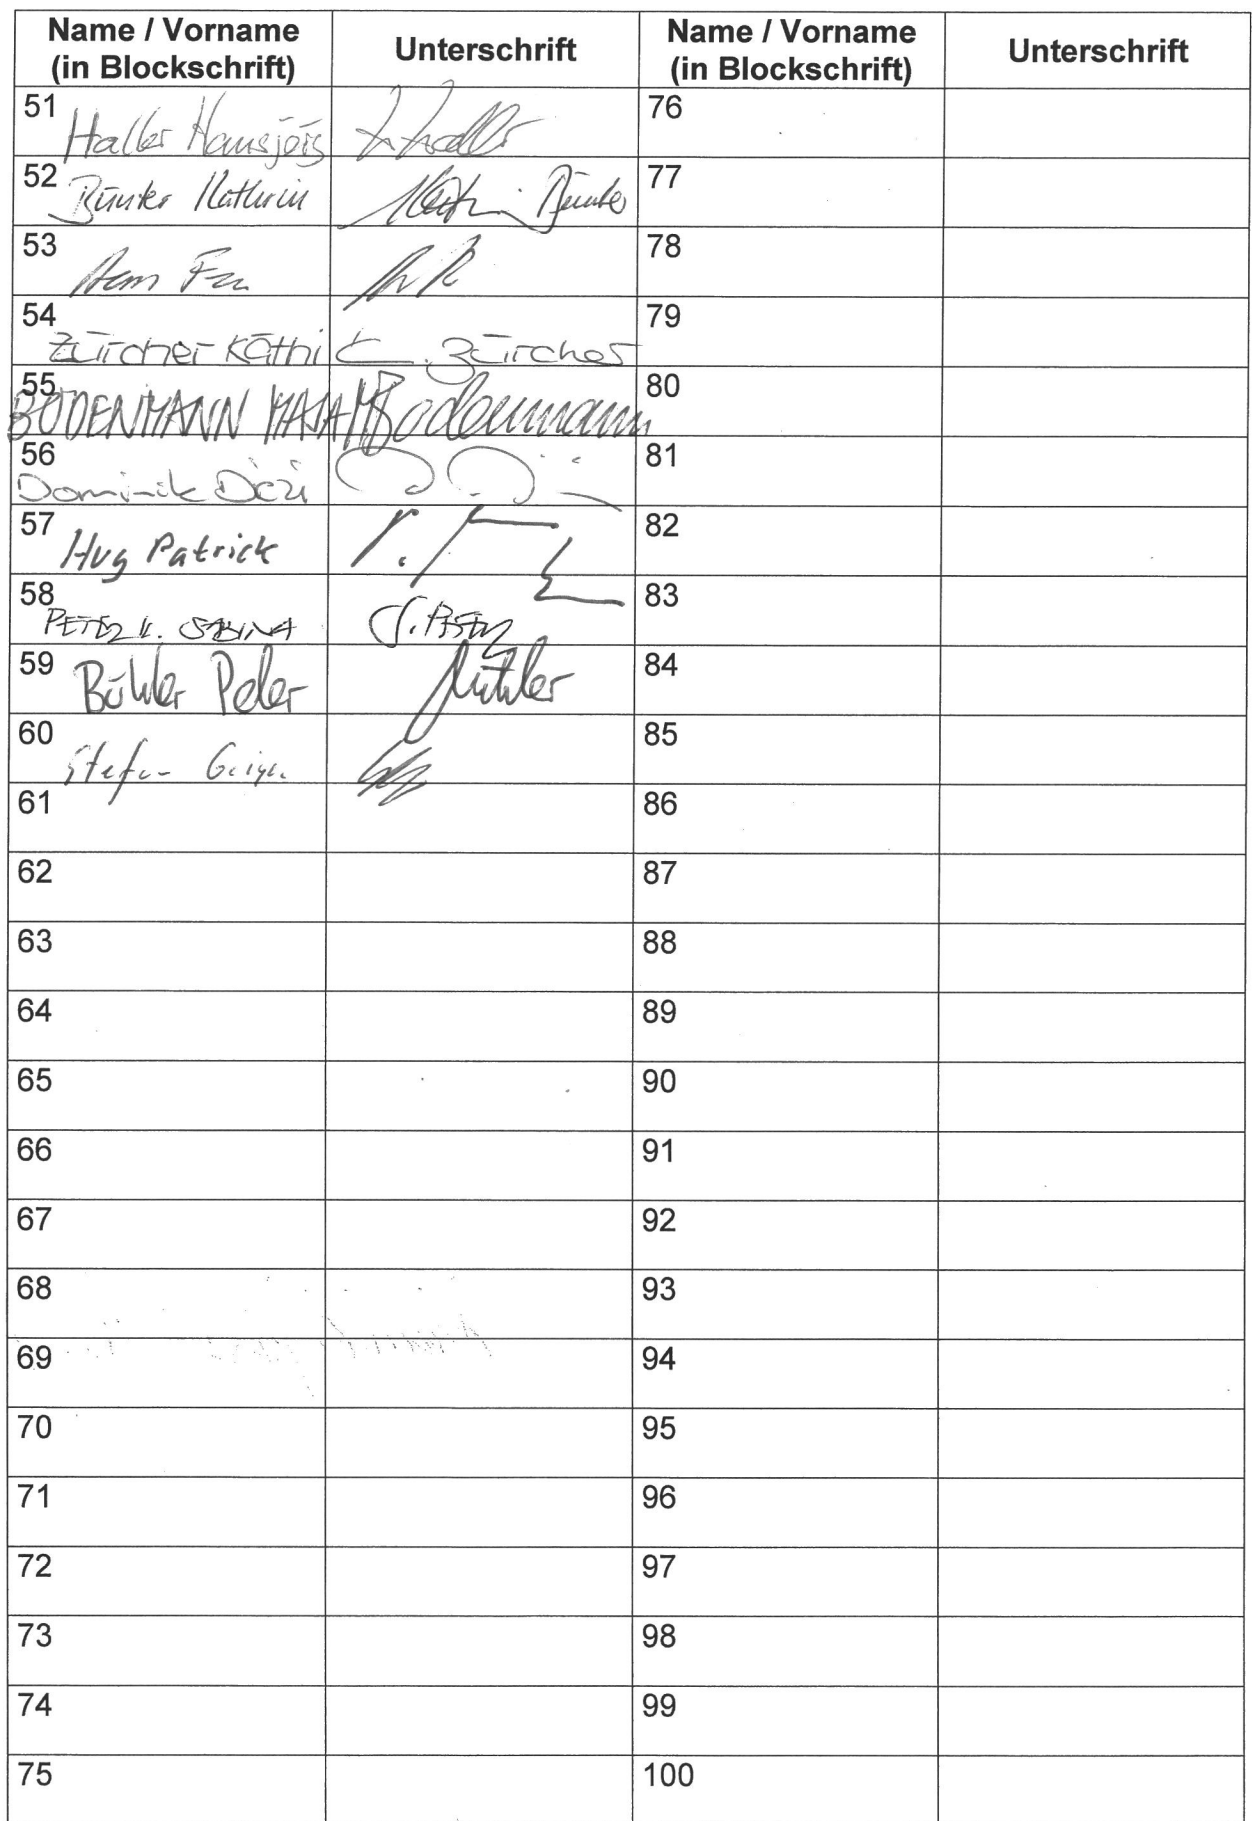 Name / Vorname (in Blockschrift) Unterschrift Name / Vorname (in Blockschrift) Unterschrift
51 Haller Hansjörg Haller 76
52 Bünter Kathrin Bünter 77
53 78
54 Zürcher Käthi K. Zürcher 79
55 BODENMANN MAJA M Bodenmann 80
56 Dominik 81
57 Hug Patrick 82
58 PETER SABINA S. PETER 83
59 Bühler Peter Bühler 84
60 Stefan Geiger 85
61 86
62 87
63 88
64 89
65 90
66 91
67 92
68 93
69 94
70 95
71 96
72 97
73 98
74 99
75 100